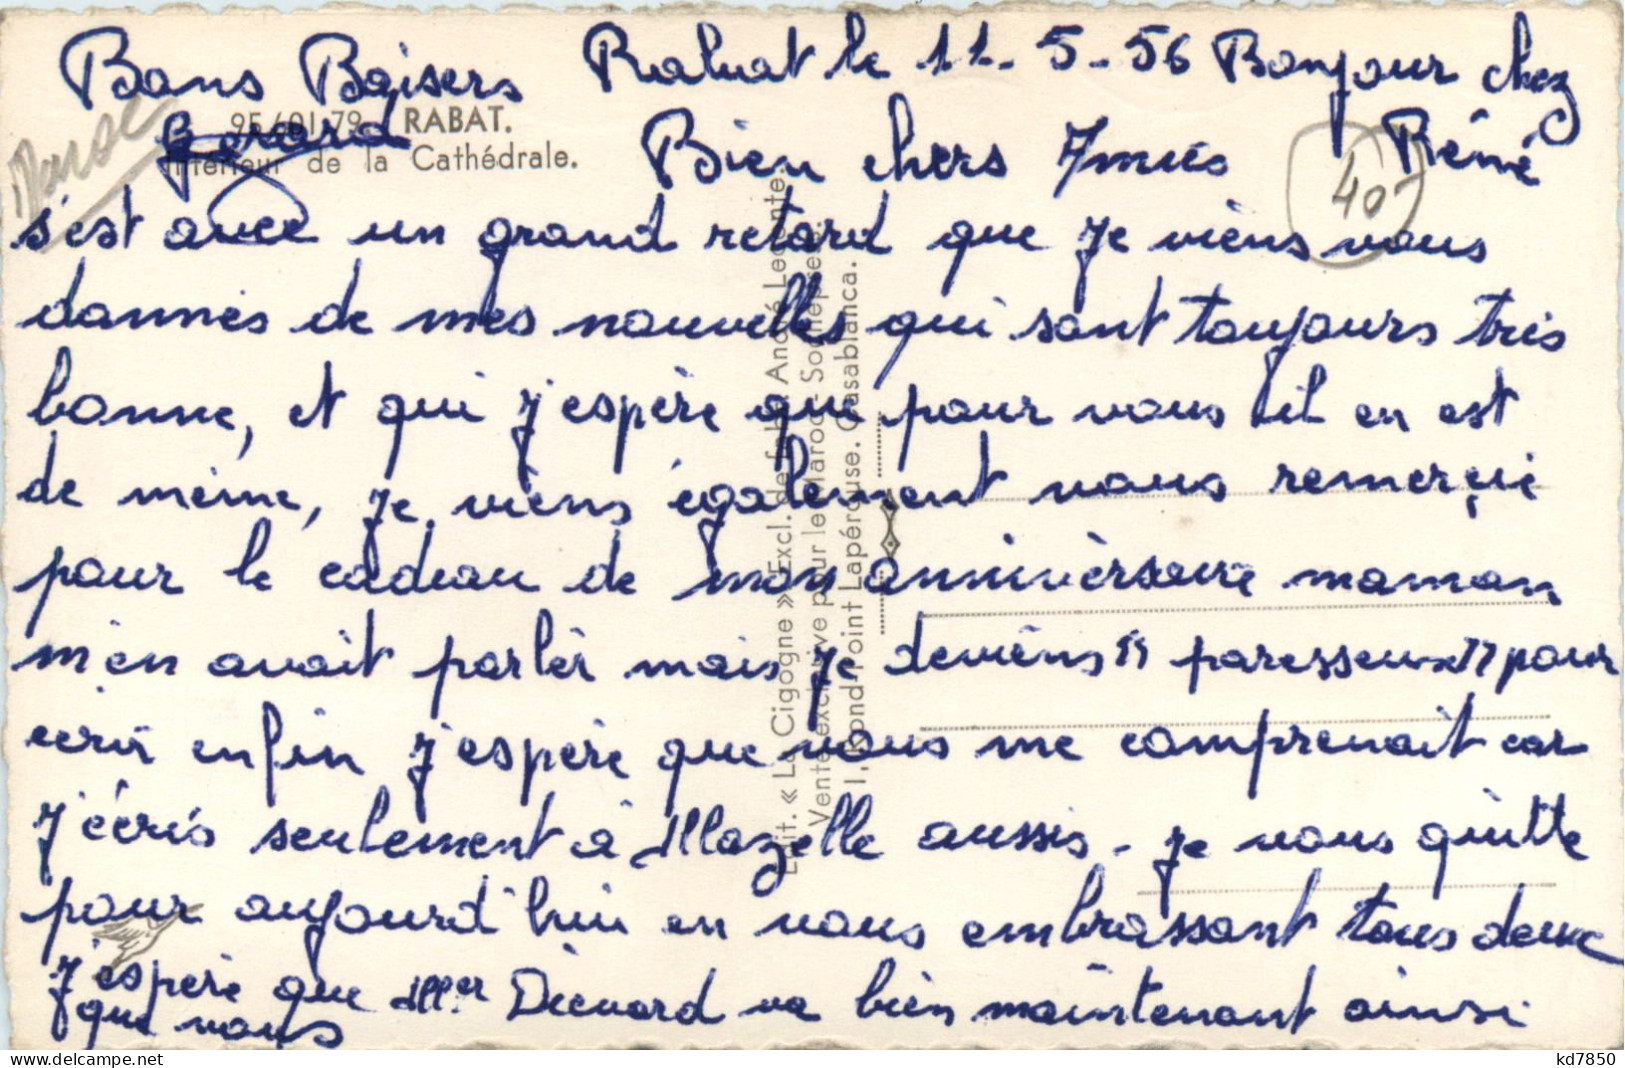 Bons Baisers
Gerard
Rabat le 11-5-56 Bonjour chez
Bien chers Réné
s'est avec un grand retard que je viens vous
donnés de mes nouvelles qui sont toujours très
bonne, et qui j'espère que pour vous il en est
de même, je viens également vous remerçié
pour le cadeau de mon anniversaire maman
m'en avait parlér mais je deviens "paresseux" pour
ecrir enfin j'espère que vous me comprenait car
j'écris seulement à Mazelle aussis. je vous quitte
pour aujourd'hui en vous embrassant tous deux
j'espère que Mer Dievard va bien maintenant ainsi
que vous
Maroc
40-
95/01 79 RABAT.
Intérieur de la Cathédrale.
Edit. « La Cigogne » Excl. de fab. André Leconte.
Vente exclusive pour le Maroc - Sochepress.
1, Rond-Point Lapérouse. Casablanca.
kd7850